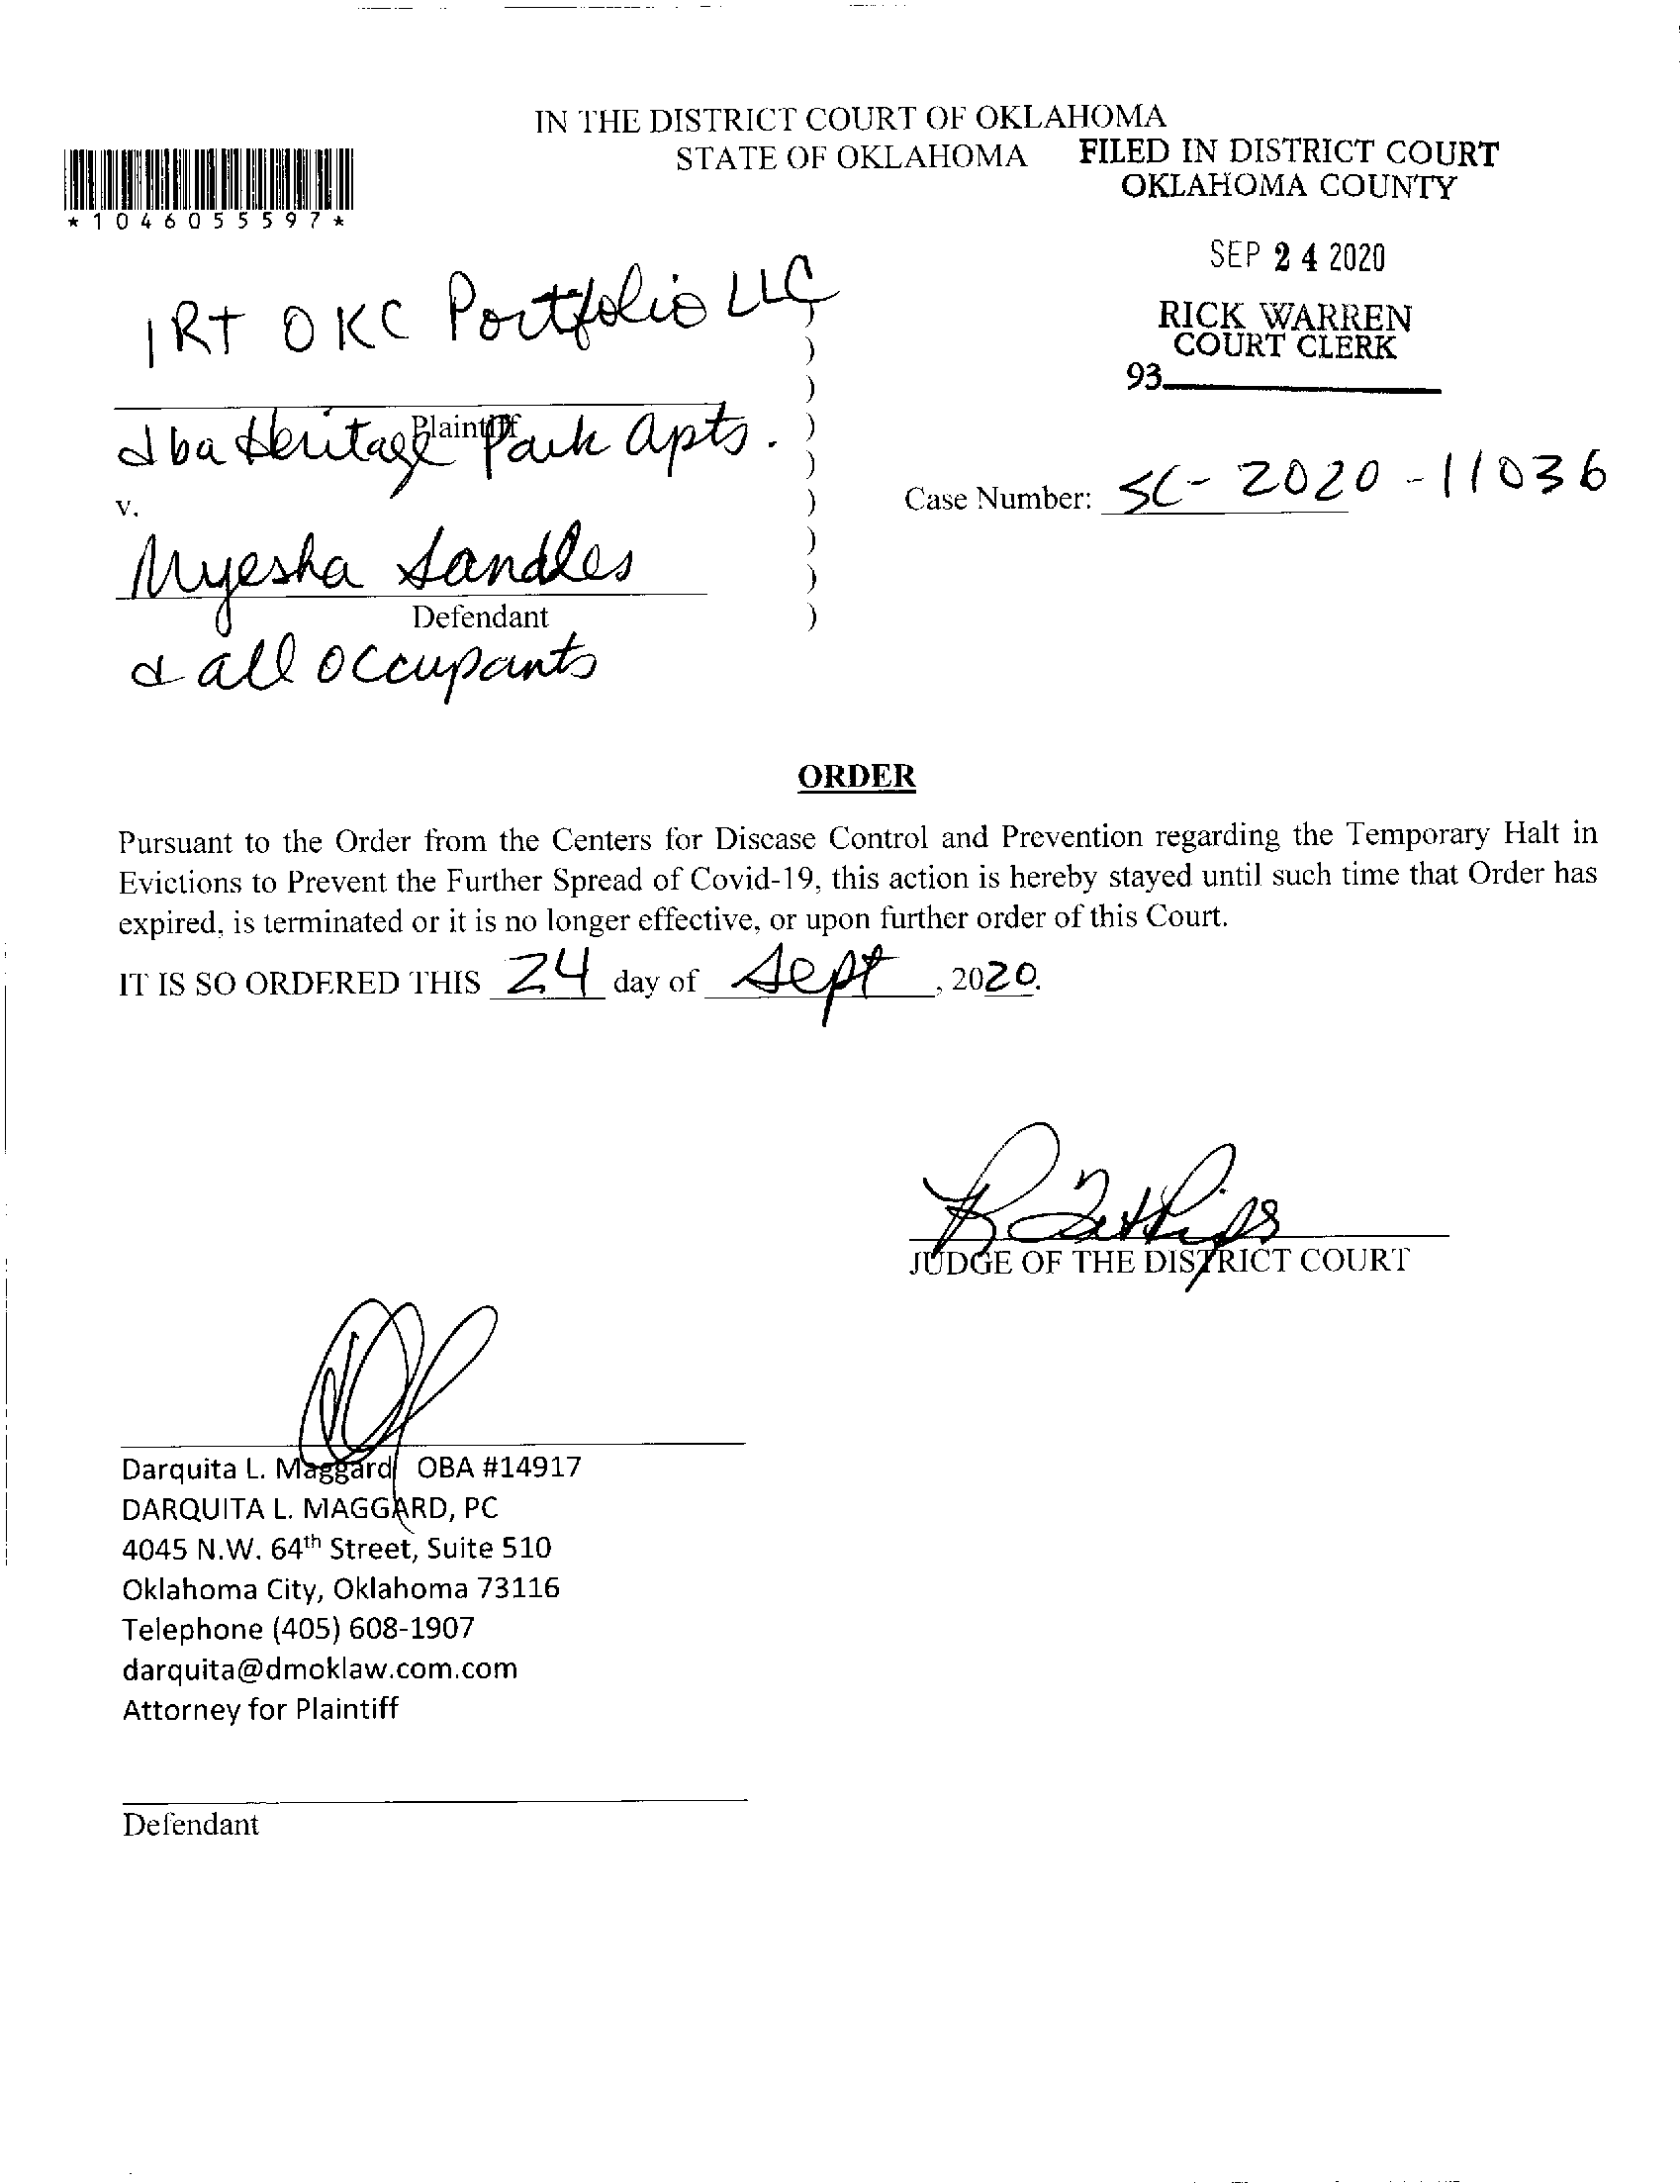 IN THE DISTRICT COURT OF OKLAHOMA
STATE OF OKLAHOMA
FILED IN DISTRICT COURT
OKLAHOMA COUNTY
*1046055597*
SEP 24 2020
RICK WARREN
COURT CLERK
93
IRT OKC Portfolio LLC
)
)
)
)
)
)
)
)
Plaintiff
dba Heritage Park Apts.
v.
Case Number: SC-2020-11036
Myesha Sandles
Defendant
& all occupants
ORDER
Pursuant to the Order from the Centers for Disease Control and Prevention regarding the Temporary Halt in
Evictions to Prevent the Further Spread of Covid-19, this action is hereby stayed until such time that Order has
expired, is terminated or it is no longer effective, or upon further order of this Court.
IT IS SO ORDERED THIS 24 day of Sept, 2020.
JUDGE OF THE DISTRICT COURT
Darquita L. Maggard OBA #14917
DARQUITA L. MAGGARD, PC
4045 N.W. 64th Street, Suite 510
Oklahoma City, Oklahoma 73116
Telephone (405) 608-1907
darquita@dmoklaw.com.com
Attorney for Plaintiff
Defendant